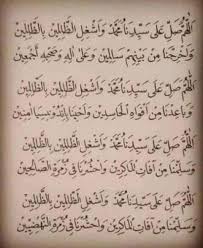 اَللّٰهُمَّ صَلِّ عَلَى سَيِّدِنَا مُحَمَّدٍ وَأَشْغِلِ الظَّالِمِيْنَ بِالظَّالِمِيْنَ
وَأَخْرِجْنَا مِنْ بَيْنِهِمْ سَالِمِيْنَ وَعَلَى آلِهِ وَصَحْبِهِ أَجْمَعِيْنَ
اَللّٰهُمَّ صَلِّ عَلَى سَيِّدِنَا مُحَمَّدٍ وَأَشْغِلِ الظَّالِمِيْنَ بِالظَّالِمِيْنَ
وَبَاعِدْنَا مِنْ أَفْوَاهِ الْحَاسِدِيْنَ وَاحْيِنَا آمِنِيْنَ
اَللّٰهُمَّ صَلِّ عَلَى سَيِّدِنَا مُحَمَّدٍ وَأَشْغِلِ الظَّالِمِيْنَ بِالظَّالِمِيْنَ
وَسَلِّمْنَا مِنْ آفَاتِ الْمَاكِرِيْنَ وَاحْشُرْنَا فِي زُمْرَةِ الصَّالِحِيْنَ
اَللّٰهُمَّ صَلِّ عَلَى سَيِّدِنَا مُحَمَّدٍ وَأَشْغِلِ الظَّالِمِيْنَ بِالظَّالِمِيْنَ
وَسَلِّمْنَا مِنْ آفَاتِ الْمَاكِرِيْنَ وَاحْشُرْنَا فِي زُمْرَةِ